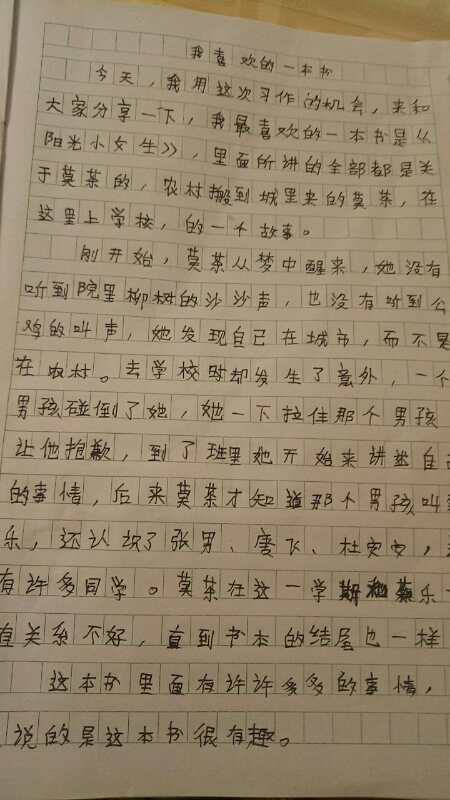 我喜欢的一本书
今天，我用这次习作的机会，来和
大家分享一下，我最喜欢的一本书是从
阳光小女生》，里面所讲的全部都是关
于莫茶的，农村搬到城里来的莫茶，在
这里上学校，的一个故事。
刚开始，莫茶从梦中醒来，她没有
听到院里柳树的沙沙声，也没有听到公
鸡的叫声，她发现自己在城市，而不是
在农村。去学校时却发生了意外，一个
男孩碰倒了她，她一下拉住那个男孩
让他抱歉，到了班里她开始来讲述自
的事情，后来莫茶才知道那个男孩叫
乐，还认识了张男、唐飞、杜安安，
有许多同学。莫茶在这一学期和乐
直关系不好，直到书本的结尾也一样
这本书里面有许许多多的事情，
说的是这本书很有趣。